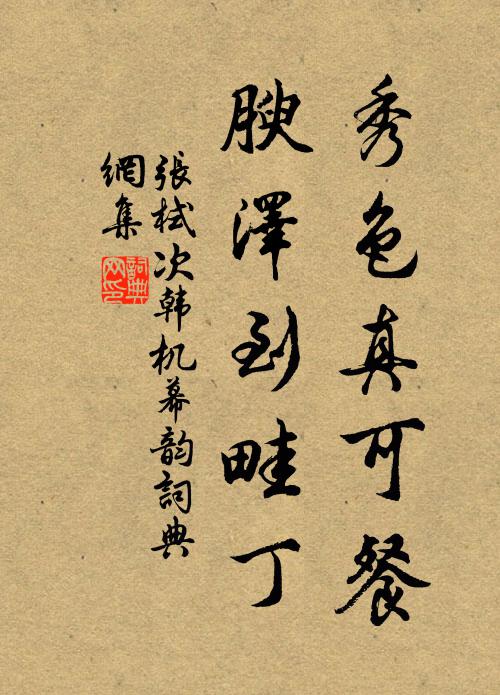 秀色真可餐
腴澤到畦丁
張栻次韩机幕韵詞典
網集
詞典
网印